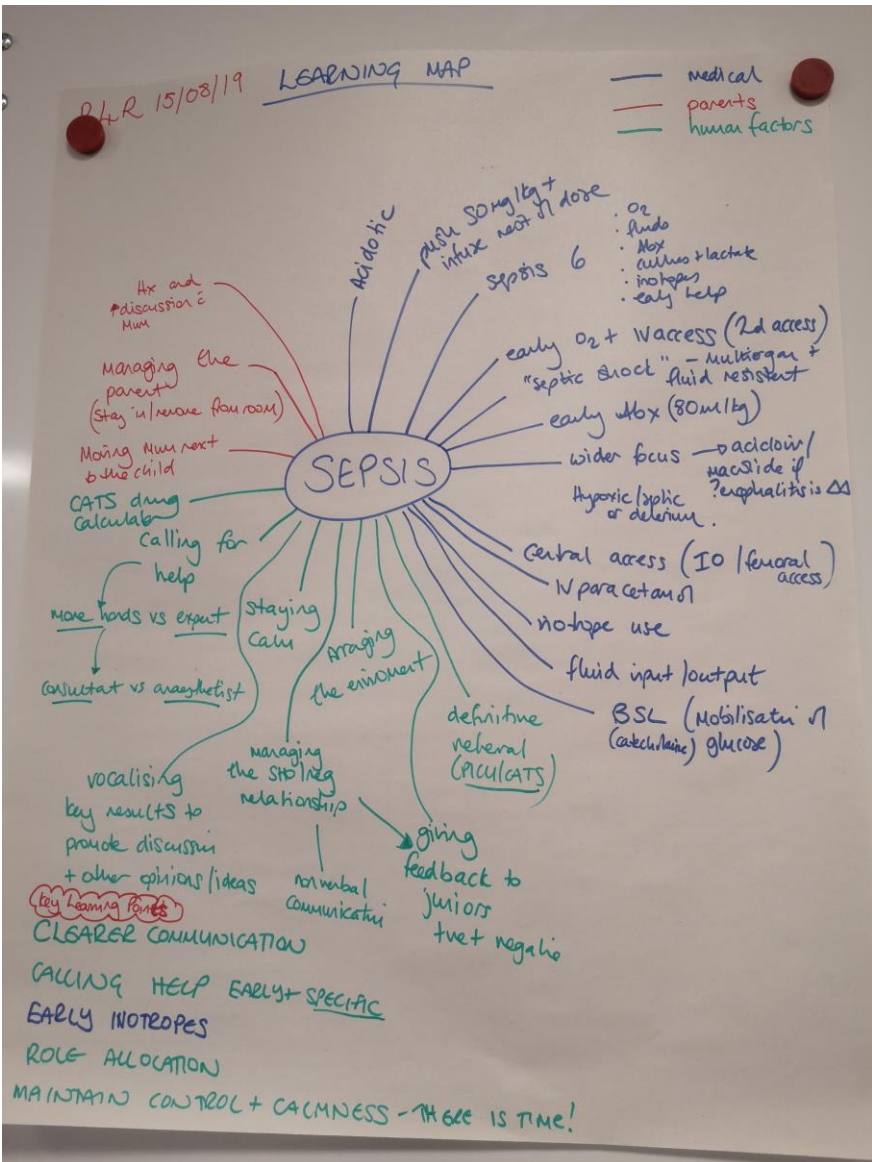 R4R 15/08/19
LEARNING MAP
medical
parents
human factors
Acidotic
push 50mg/kg +
infuse rest of dose
sepsis 6
· O2
· fluids
· Abx
· cultures + lactate
· inotopes
· early help
early O2 + IV access (2nd access)
"septic shock" - multiorgan +
fluid resistent
early Abx (80ml/kg)
wider focus → aciclovir/
macrolide if
?encephalitis is ΔΔ
Hypoxic/septic
or delerium.
central access (IO / femoral
access)
IV paracetamol
inotrope use
fluid input/output
BSL (Mobilisation of
(catecholamine) glucose)
Hx and
discussion c̄
Mum
Managing the
parent
(Stay in/remove from room)
Moving Mum next
to the child
SEPSIS
CATS drug
calculator
calling for
help
more hands vs expert
consultat vs anaesthetist
staying
calm
the enviroment
definitive
referral
(PICU/CATS)
managing
the SHO/reg
relationship
vocalising
key results to
provide discussion
+ other opinions/ideas
nonverbal
communication
giving
feedback to
juniors
+ve + negative
key Learning Points
CLEARER COMMUNICATION
CALLING HELP EARLY + SPECIFIC
EARLY INOTROPES
ROLE ALLOCATION
MAINTAIN CONTROL + CALMNESS - THERE IS TIME!